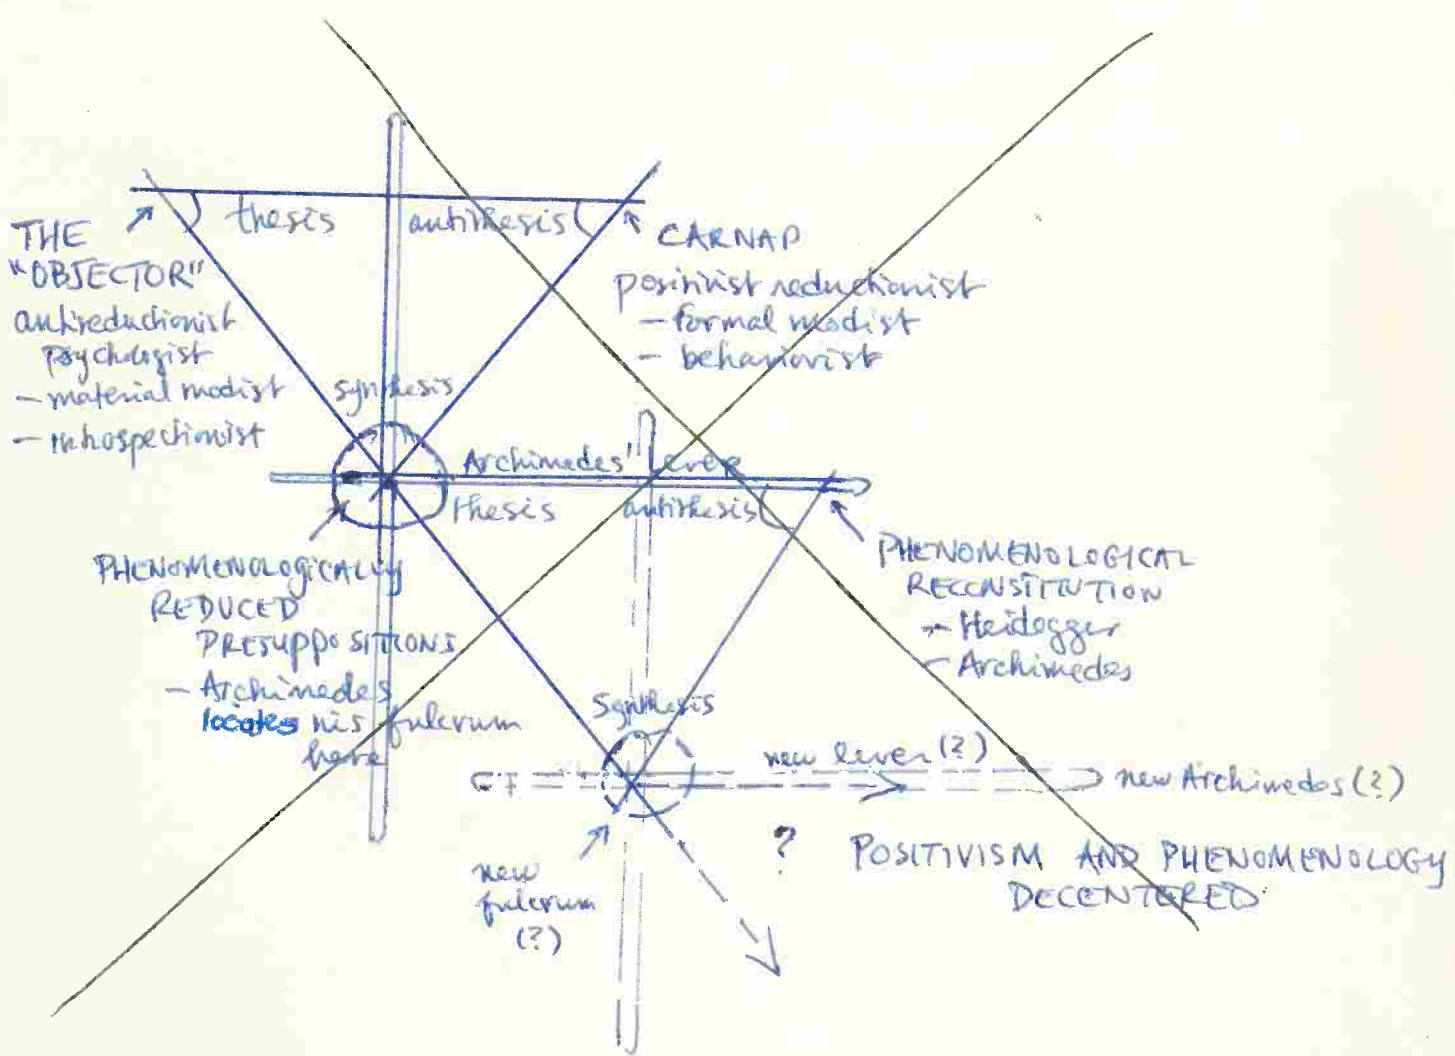 thesis
antithesis
THE
"OBJECTOR"
antireductionist
psychologist
– material modist
– introspectionist
CARNAP
positivist reductionist
– formal modist
– behaviorist
synthesis
Archimedes' Lever
thesis
antithesis
PHENOMENOLOGICALLY
REDUCED
PRESUPPOSITIONS
– Archimedes
locates his fulcrum
here
PHENOMENOLOGICAL
RECONSTITUTION
– Heidegger
– Archimedes
synthesis
new lever (?)
new Archimedes (?)
new
fulcrum
(?)
?
POSITIVISM AND PHENOMENOLOGY
DECENTERED